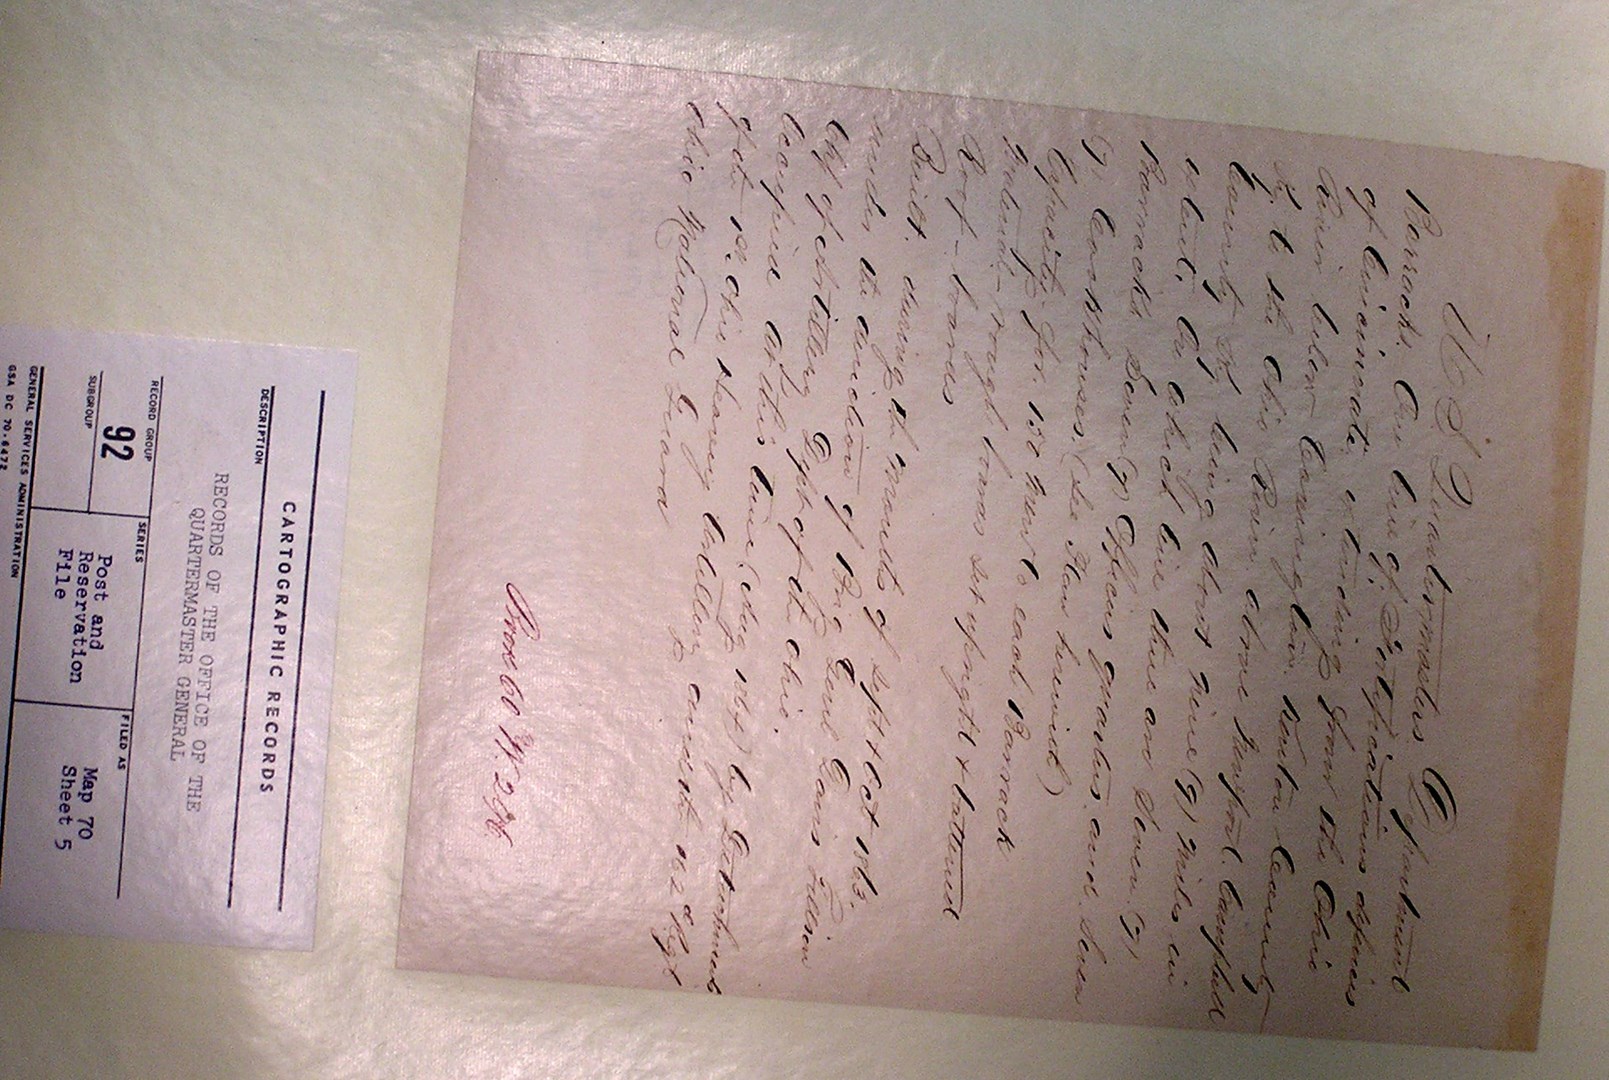 U S Quartermasters Department
Barracks. On line of Fortifications defences
of Cincinnati, extending from the Ohio
River below Covington, Kenton County
Ky to the Ohio River above Newport Campbell
County Ky being about nine (9) miles in
extent. On which line there are Seven (7)
Barracks Seven (7) Officers quarters and Seven
(7) Cookhouses. (See Plan herewith)
Capacity for 150 men to each Barrack
Material - rough boards set upright & battened
Roof - boards
Built during the months of Sept & Oct 1863.
under the direction of Brig Genl Davis Tillson
Chf of Artillery Dept of the Ohio.
Occupied at this time (Aug 1864) by Detachment
of the 1st Ohio Heavy Artillery and the 2d Regt
Ohio National Guard
CARTOGRAPHIC RECORDS
DESCRIPTION
RECORDS OF THE OFFICE OF THE
QUARTERMASTER GENERAL
RECORD GROUP
92
SUBGROUP
SERIES
Post and
Reservation
File
FILED AS
Map 70
Sheet 5
GENERAL SERVICES ADMINISTRATION
GSA DC 70-6472